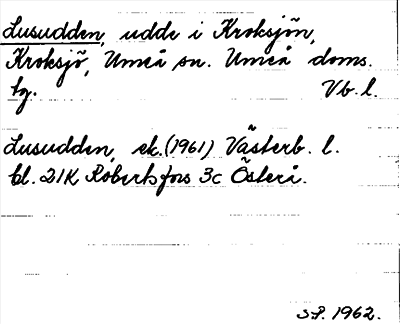 Lusudden, udde i Kroksjön,
Kroksjö, Umeå sn. Umeå doms.
tg. Vb. l.
Lusudden, ek. (1961) Västerb. l.
bl. 21K Robertsfors 3c Österå.
S.P. 1962.